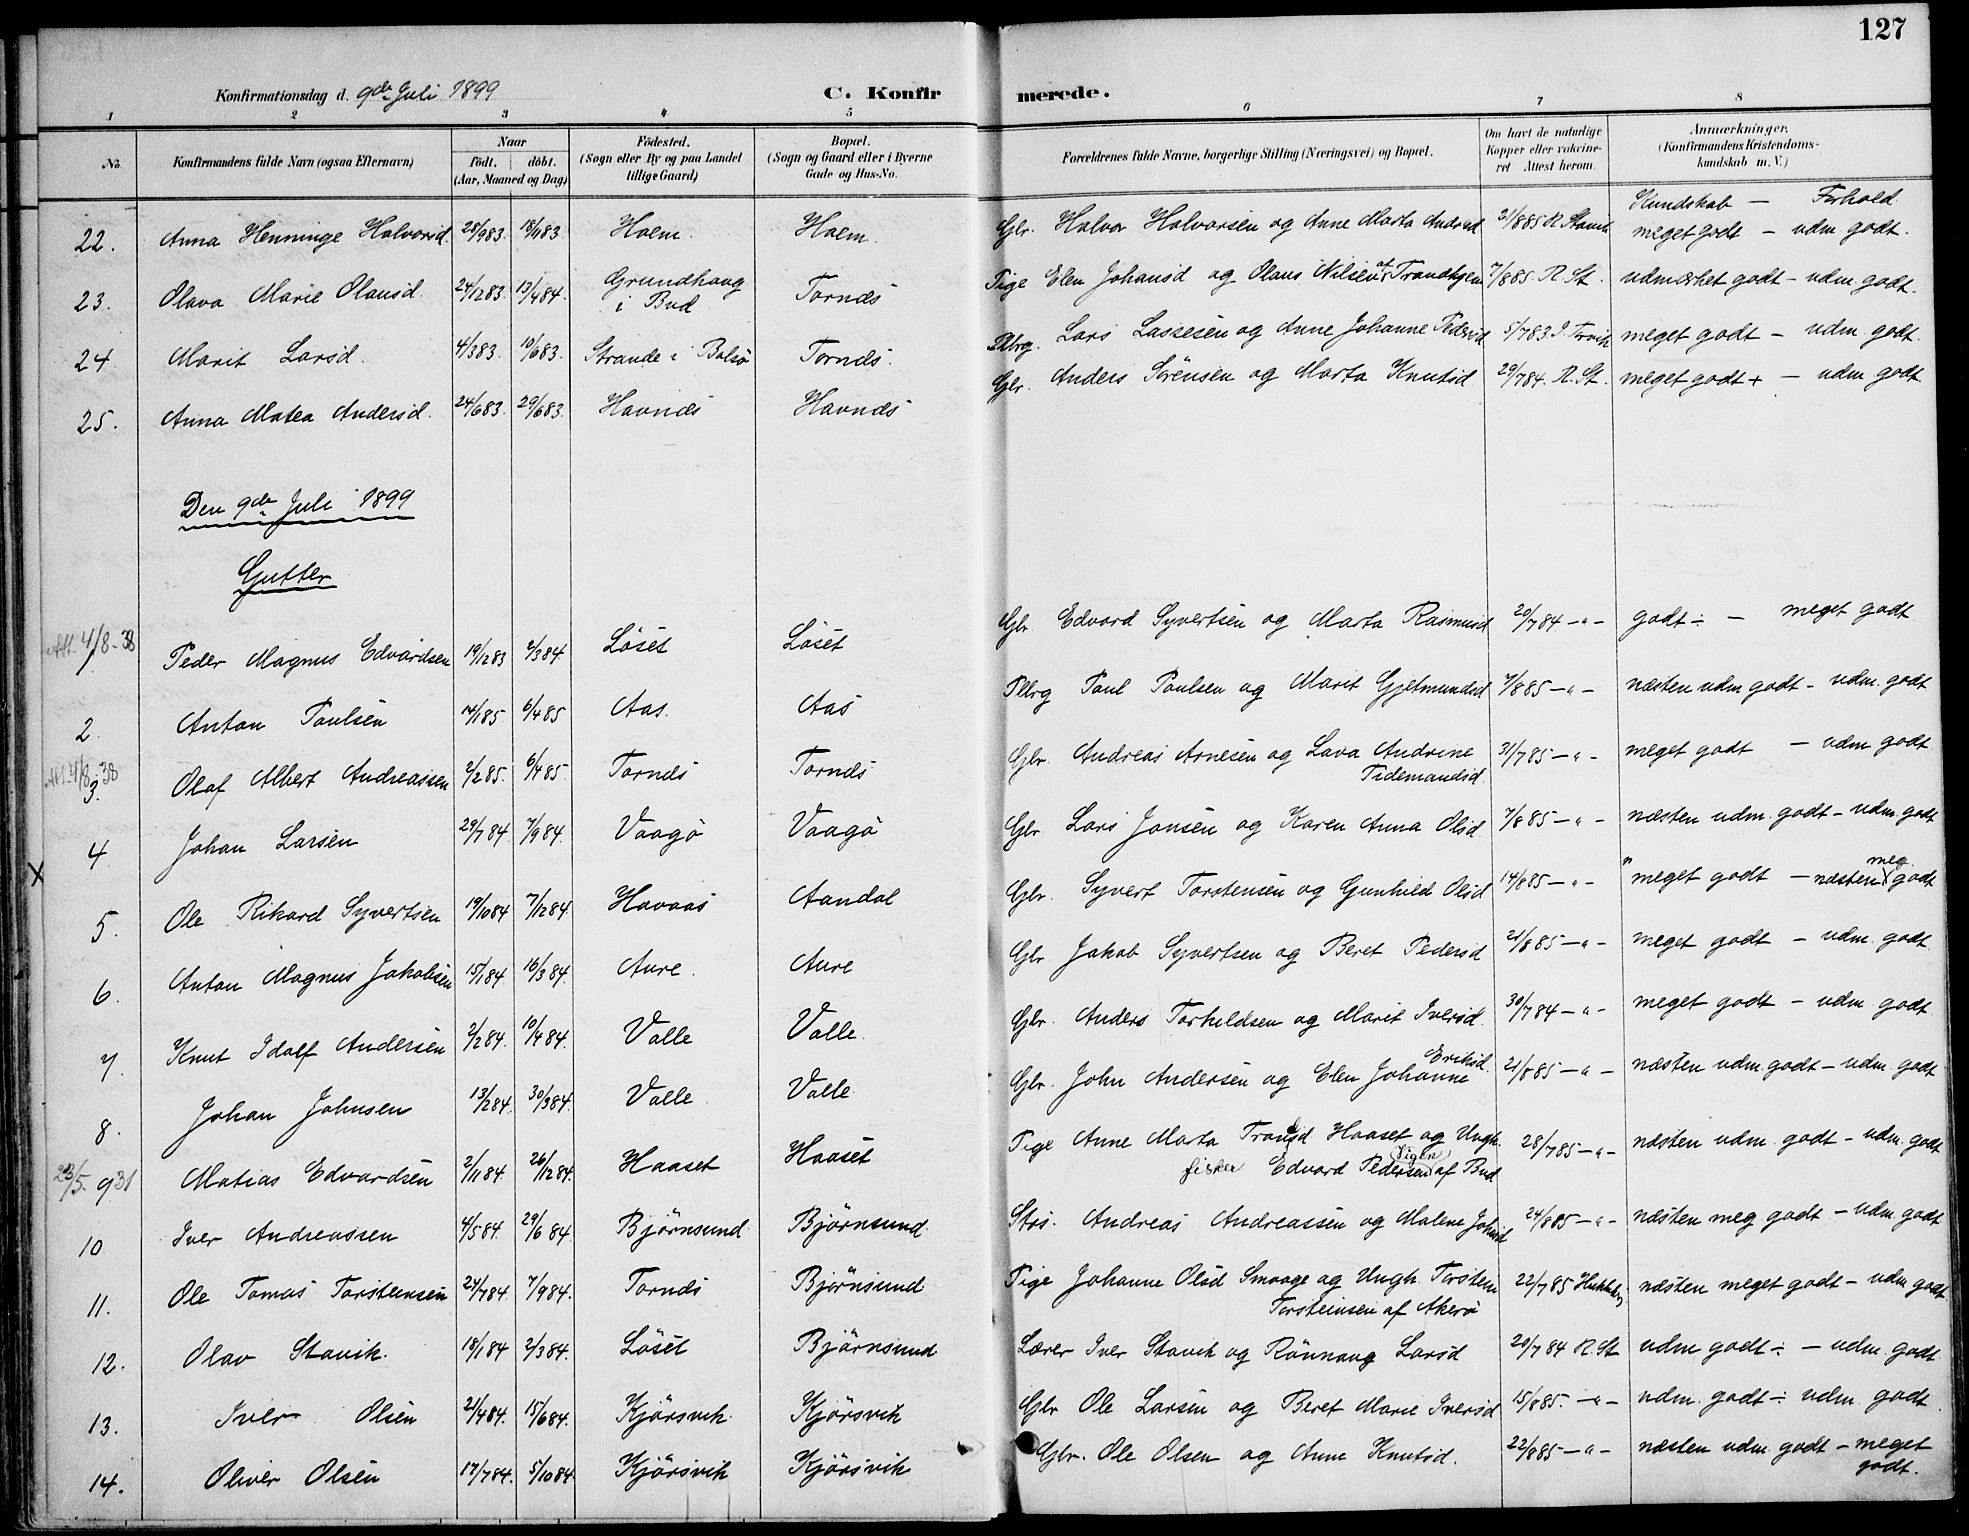 127
Konfirmationsdag d. 9de Juli 1899 C. Konfirmerede.
1 2 3 4 5 6 7 8
No. Konfirmandens fulde Navn (ogsaa Efternavn) Naar födt. döbt. (Aar, Maaned og Dag) Födested. (Sogn eller By og paa Landet tillige Gaard) Bopæl. (Sogn og Gaard eller i Byerne Gade og Hus-No. Forældrenes fulde Navne, borgerlige Stilling (Næringsvei) og Bopæl. Om havt de naturlige Kopper eller vakcineret Attest herom. Anmærkninger. (Konfirmandens Kristendomskundskab m. V.)
Kundskab — Forhold
22. Anna Henninge Halvorsd. 28/983. 18/1183. Haem. Haem. Gbr. Halvor Halvorsen og Anne Marta Andersd 31/885 R. Stavik meget godt — udm. godt.
23. Olava Marie Olausd. 24/1283. 13/484. Grundhaug i Bud Tornes Pige Elen Johansd og Olaus Nilsen af Trondhjem 7/885. R. St. udmærket godt — udm. godt.
24 Marit Larsd. 4/383. 10/683. Strande i Bolsö Tornes. Plbrg. Lars Lassesen og Anne Johanne Pedersd 5/783. meget godt — udm. godt.
25. Anna Matea Andersd. 24/683. 29/683. Havnes Havnes Gbr. Anders Sörensen og Marta Knutsd 29/784. R. St. meget godt + — udm. godt
Den 9de Juli 1899
Gutter
Att. 4/8-38
1 Peder Magnus Edvardsen 19/1283 2/384 Löset Löset Gbr Edvard Syvertsen og Marta Rasmusd 20/784 —"— godt ÷ — meget godt
2 Anton Paulsen 14/185 6/485 Aas. Aas Plbrg Paul Paulsen og Marit Gjetmundsd 7/885 —"— næsten udm godt — udm. godt
Att. 4/8-38
3. Olaf Albert Andreassen 2/285. 6/485 Tornes Tornes Gbr. Andreas Arnesen og Lava Andrine Tidemandsd. 31/785 —"— meget godt — udm godt
4 Johan Larsen 29/784 7/984. Vaagö Vaagö Gbr Lars Jonsen og Karen Anna Olsd 7/885 —"— næsten udm. godt — udm. godt
X
5. Ole Rikard Syvertsen 19/1084 7/1284. Havaas Aandal Gbr. Syvert Torstensen og Gunhild Olsd 14/885 —"— " meget godt — næsten meg. godt
6. Anton Magnus Jakobsen 15/184. 16/384. Aure. Aure Gbr Jakob Syvertsen og Beret Pedersd 21/885 —"— meget godt — udm. godt
7. Knut Idolf Andersen 2/284. 10/484. Valle Valle Gbr. Anders Torkildsen og Marit Iversd. 30/784 —"— meget godt — udm. godt
8. Johan Johnsen 13/284. 30/384. Valle Valle Gbr. John Andersen og Elen Johanne Eriksd. 21/885 —"— næsten udm. godt — udm. godt
23/5-31
9 Matias Edvardsen 2/1184. 26/1284. Haaset Haaset Pige Anne Marta Haaset og Ungk. fisker Edvard Pedersen Vigen af Bud 28/785 —"— næsten udm. godt — udm. godt
10 Iver Andreassen 4/584. 29/684 Björnsund Björnsund. Strs. Andreas Andreassen og Malene Johnsd 24/885 —"— næsten meg godt — udm. godt
11. Ole Tomas Torsteinsen 24/784. 7/984. Tornes Björnsund Pige Johanne Olsd Smaage og Ungk. Torstein Torsteinsen af Akerö 22/785 næsten meget godt — udm godt
12. Olav Stavik. 18/184 2/384. Löset Björnsund Lærer Iver Stavik og Rönnaug Larsd 20/784 R. St udm godt ÷ — udm. godt
13. Iver Olsen 21/484. 15/684. Kjörsvik Kjörsvik Gbr Ole Larsen og Beret Marie Iversd 15/885. —"— udm. godt ÷ udm. godt
14. Oliver Olsen 17/784. 5/1084 Kjörsvik Kjörsvik Gbr. Ole Olsen og Anne Knutsd. 22/885 —"— næsten udm. godt — meget godt.